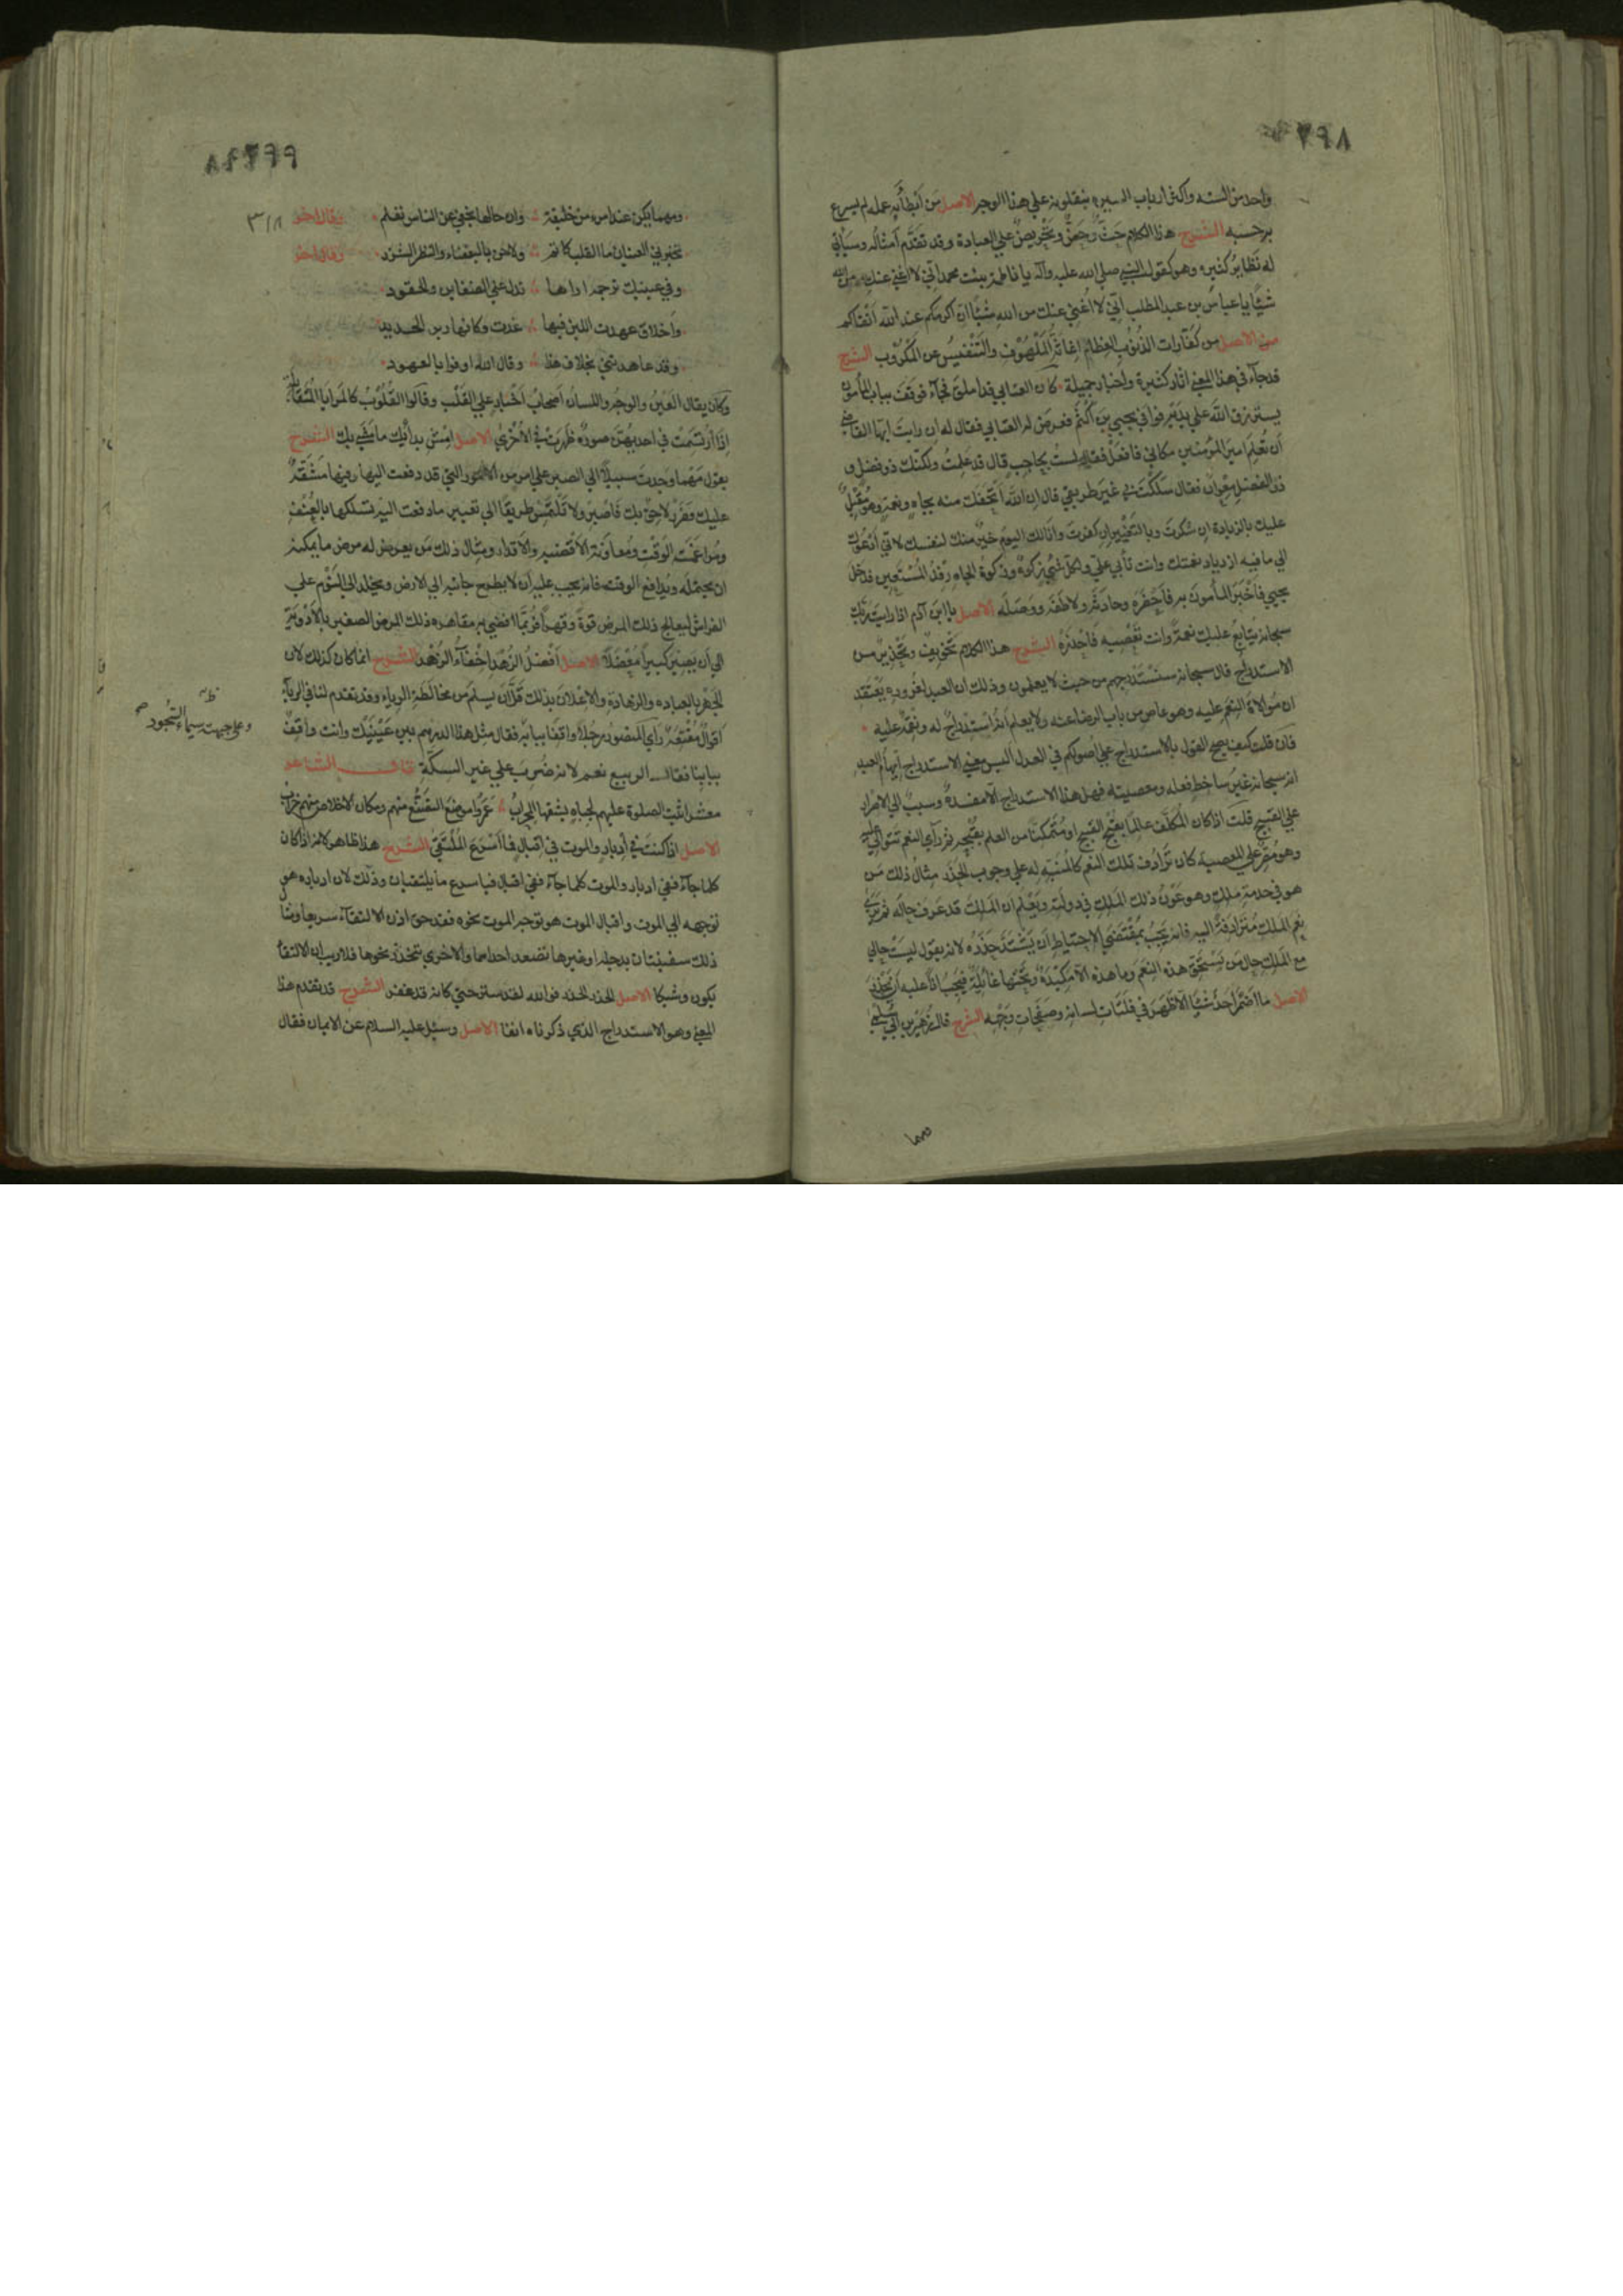 ٧٩٨
واحد من السنه واكثر ارباب السيره ينقلونه علي هذا الوجه الاصل مَن اَبْطَأَ به عمله لم يسرع
به حسبه الشرح هذا الكلام حَثٌّ وحَضٌّ وتَحْريصٌ علي العبادة وقد تقدَّم اَمثاله وسيأتي
له نظايرُ كثيره وهو كقول النبي صلي الله عليه وآله يا فاطمة بنت محمد اني لا اغني عنك من الله
شيئًا يا عباس بن عبد المطلب اِنّي لا اُغني عنك من الله شيئًا ان اكرمكم عند الله اَتقاكم
الاصل من كفّارات الذنوب العِظام اِغاثةُ المَلْهُوف والتَّنْفيسُ عن المَكْرُوب الشرح
قد جآء في هذا المعني آثار كثيرة واخبار جميلة كان العتابي قد املق فجآء فوقف بباب المأمون
يسترزق الله علي يديه فوافي يحيي بن اكثم فعرض له العتابي فقال له ان رايت ايها القاضي
أن تُعلم امير المؤمنين مكاني فافعل فقال لست بحاجب قال قد علمتُ ولكنك ذو فضل و
ذو الفضل مِعْوان فقال سلكتَ بي غير طريقي قال ان الله اَتحفك منه بجاهٍ ونعمةٍ وهو مُقْبِلٌ
عليك بالزيادة ان شكرت وبالتغيير ان كفرت وانا لك اليوم خيرٌ منك لنفسك لانّي اَدعوك
الي ما فيه ازدياد نعمتك وانت تأبي عليّ ولكل شيء زكوة وزكوة الجاه رفدُ المستعين فدخل
يحيي فاَخبَرَ المأمون به فاَحضَرَه وحادَثَه ولاطفه ووَصَلَه الاصل يا ابن آدم اذا رايت ربّك
سبحانه يُتابِعُ عليك نعمه وانت تعصيه فاحذره الشرح هذا الكلام تخويف وتحذير من
الاستدراج قال سبحانه سنستدرجهم من حيث لا يعلمون وذلك ان العبد لغروره يعتقد
ان مُوالاة النِّعَم عليه وهو عاصٍ من باب الرضا عنه ولا يعلم انه استدراج له ونقمة عليه
فان قلت كيف يصح القول بالاستدراج علي اصولكم في العدل اليس معني الاستدراج ايهام العبد
انه سبحانه غيرُ ساخط فعله ومعصيته فهل هذا الاستدراج الّا مفسدةٌ وسببٌ الي الاصرار
علي القبيح قلت اذا كان المكلّف عالمًا بقُبح القبيح او متمكّنًا من العلم بقبحه ثم رآي النعم تتوالي عليه
وهو مُصِرّ علي المعصيه كان تَرادُف تلك النعم كالمُنَبِّه له علي وجوب الحذر مثالُ ذلك مَن
هو في خدمة ملكٍ وهو عَوْنُ ذلك الملك في دولته ويعلم ان الملك قد عرف حاله ثم يري
نِعَم الملك مُترادفةً اليه فانه يَجبُ بمُقْتَضي الاحتياط ان يشتدّ حَذَرُه لانه يقول ليست حالي
مع الملك حال من يستحقّ هذه النِّعَم وما هذه الّا مكيدةٌ وتحتها غائلةٌ فيجب اذًا عليه ان يحذر
الاصل ما اَضمَرَ اَحدٌ شيئًا الّا ظَهَرَ في فَلَتات لسانه وصفحات وجهه الشرح قال زهير بن ابي سلمي
٧٩٩
٣١٨
ومهما يكن عند امرء من خليقة وان خالها تخفي عن الناس تعلم وقال اخر
تخبرني العينان ما القلب كاتم ولا جنّ بالبغضاء والنظر الشزر وقال اخر
وفي عينيك ترجمة اراها تدل علي الضغاين والحقود
واَخلاق عهدت اللين فيها غدت وكانها زبر الحديد
وقد عاهدتني بخلاف هذا وقال الله اوفوا بالعهود
وكان يقال العين والوجه واللسان اَصحاب اَخبار علي القلب وقالوا القلوب كالمرايا المتقابلة
اذا ارتسمت في احديهن صورة ظهرت في الاُخري الاصل اِمْشِ بدأيك ما مَشي بك الشرح
يقول مَهما وجدت سبيلًا الي الصبر علي امر من الامور التي قد دفعت اليها وفيها مَشقّة
عليك وضرر لاحق بك فاصبر ولا تلتمس طريقًا الي تغيير ما دفعت اليه تسلكها بالعُنْف
ومُراغمة الوقت ومعاونة الاقضيه والاقدار ومثال ذلك من يعرض له مرض ما يمكنه
ان يحتمله ويدافع الوقت فانه يجب عليه ان لا يطرح جانبه الي الارض ويخلد الي النوم علي
الفراش ليعالج ذلك المرض قوةً وقهرًا فربّما افضي به مقاهرة ذلك المرض الصغير بالاَدوية
الي اَن يصير كبيرًا مُعْضِلًا الاصل اَفضلُ الزُّهْد اِخفآءُ الزُّهْد الشرح انما كان كذلك لان
الجَهْر بالعباده والزهادة والاِعْلان بذلك قلّ اَن يسلم من مخالطة الريا وقد تقدم لنا في الريآء
اَقوالٌ مُقْنِعَة رآي المنصور رجلًا واقفا ببابه فقال مثل هذا الدرهم بين عَيْنَيْك وانت واقفٌ
ببابنا فقال الربيع نعم لانه ضُرِبَ علي غير السكّة قال الشاعر
معشر اثبت الصلوة عليهم لجباهٍ يشقها المحراب عَمَرُوا موضع التصنّع منهم ومكان الاخلاص منهم خراب
وعلي جبهته سيماء السُّجُود
الاصل اذا كنتَ في اِدبار والموت في اِقبال فما اَسْرَعَ المُلْتَقي الشرح هذا ظاهر لانه اذا كان
كلما جآء ففي ادبار والموت كلما جآء ففي اقبال فيا سرع ما يلتقيان وذلك لان ادباره هو
توجهه الي الموت واقبال الموت هو توجه الموت نحوه فقد حق اذن الالتقآء سريعا ومثا
ذلك سفينتان بدجلة او غيرها تصعد احداهما والاخري تنحدر نحوها فلا ريب ان الالتقآ
يكون وشيكا الاصل الحذر الحذر فوالله لقد ستر حتي كانه قد غفر الشرح قد تقدم هذا
المعني وهو الاستدراج الذي ذكرناه انفا الاصل وسئل عليه السلام عن الايمان فقال